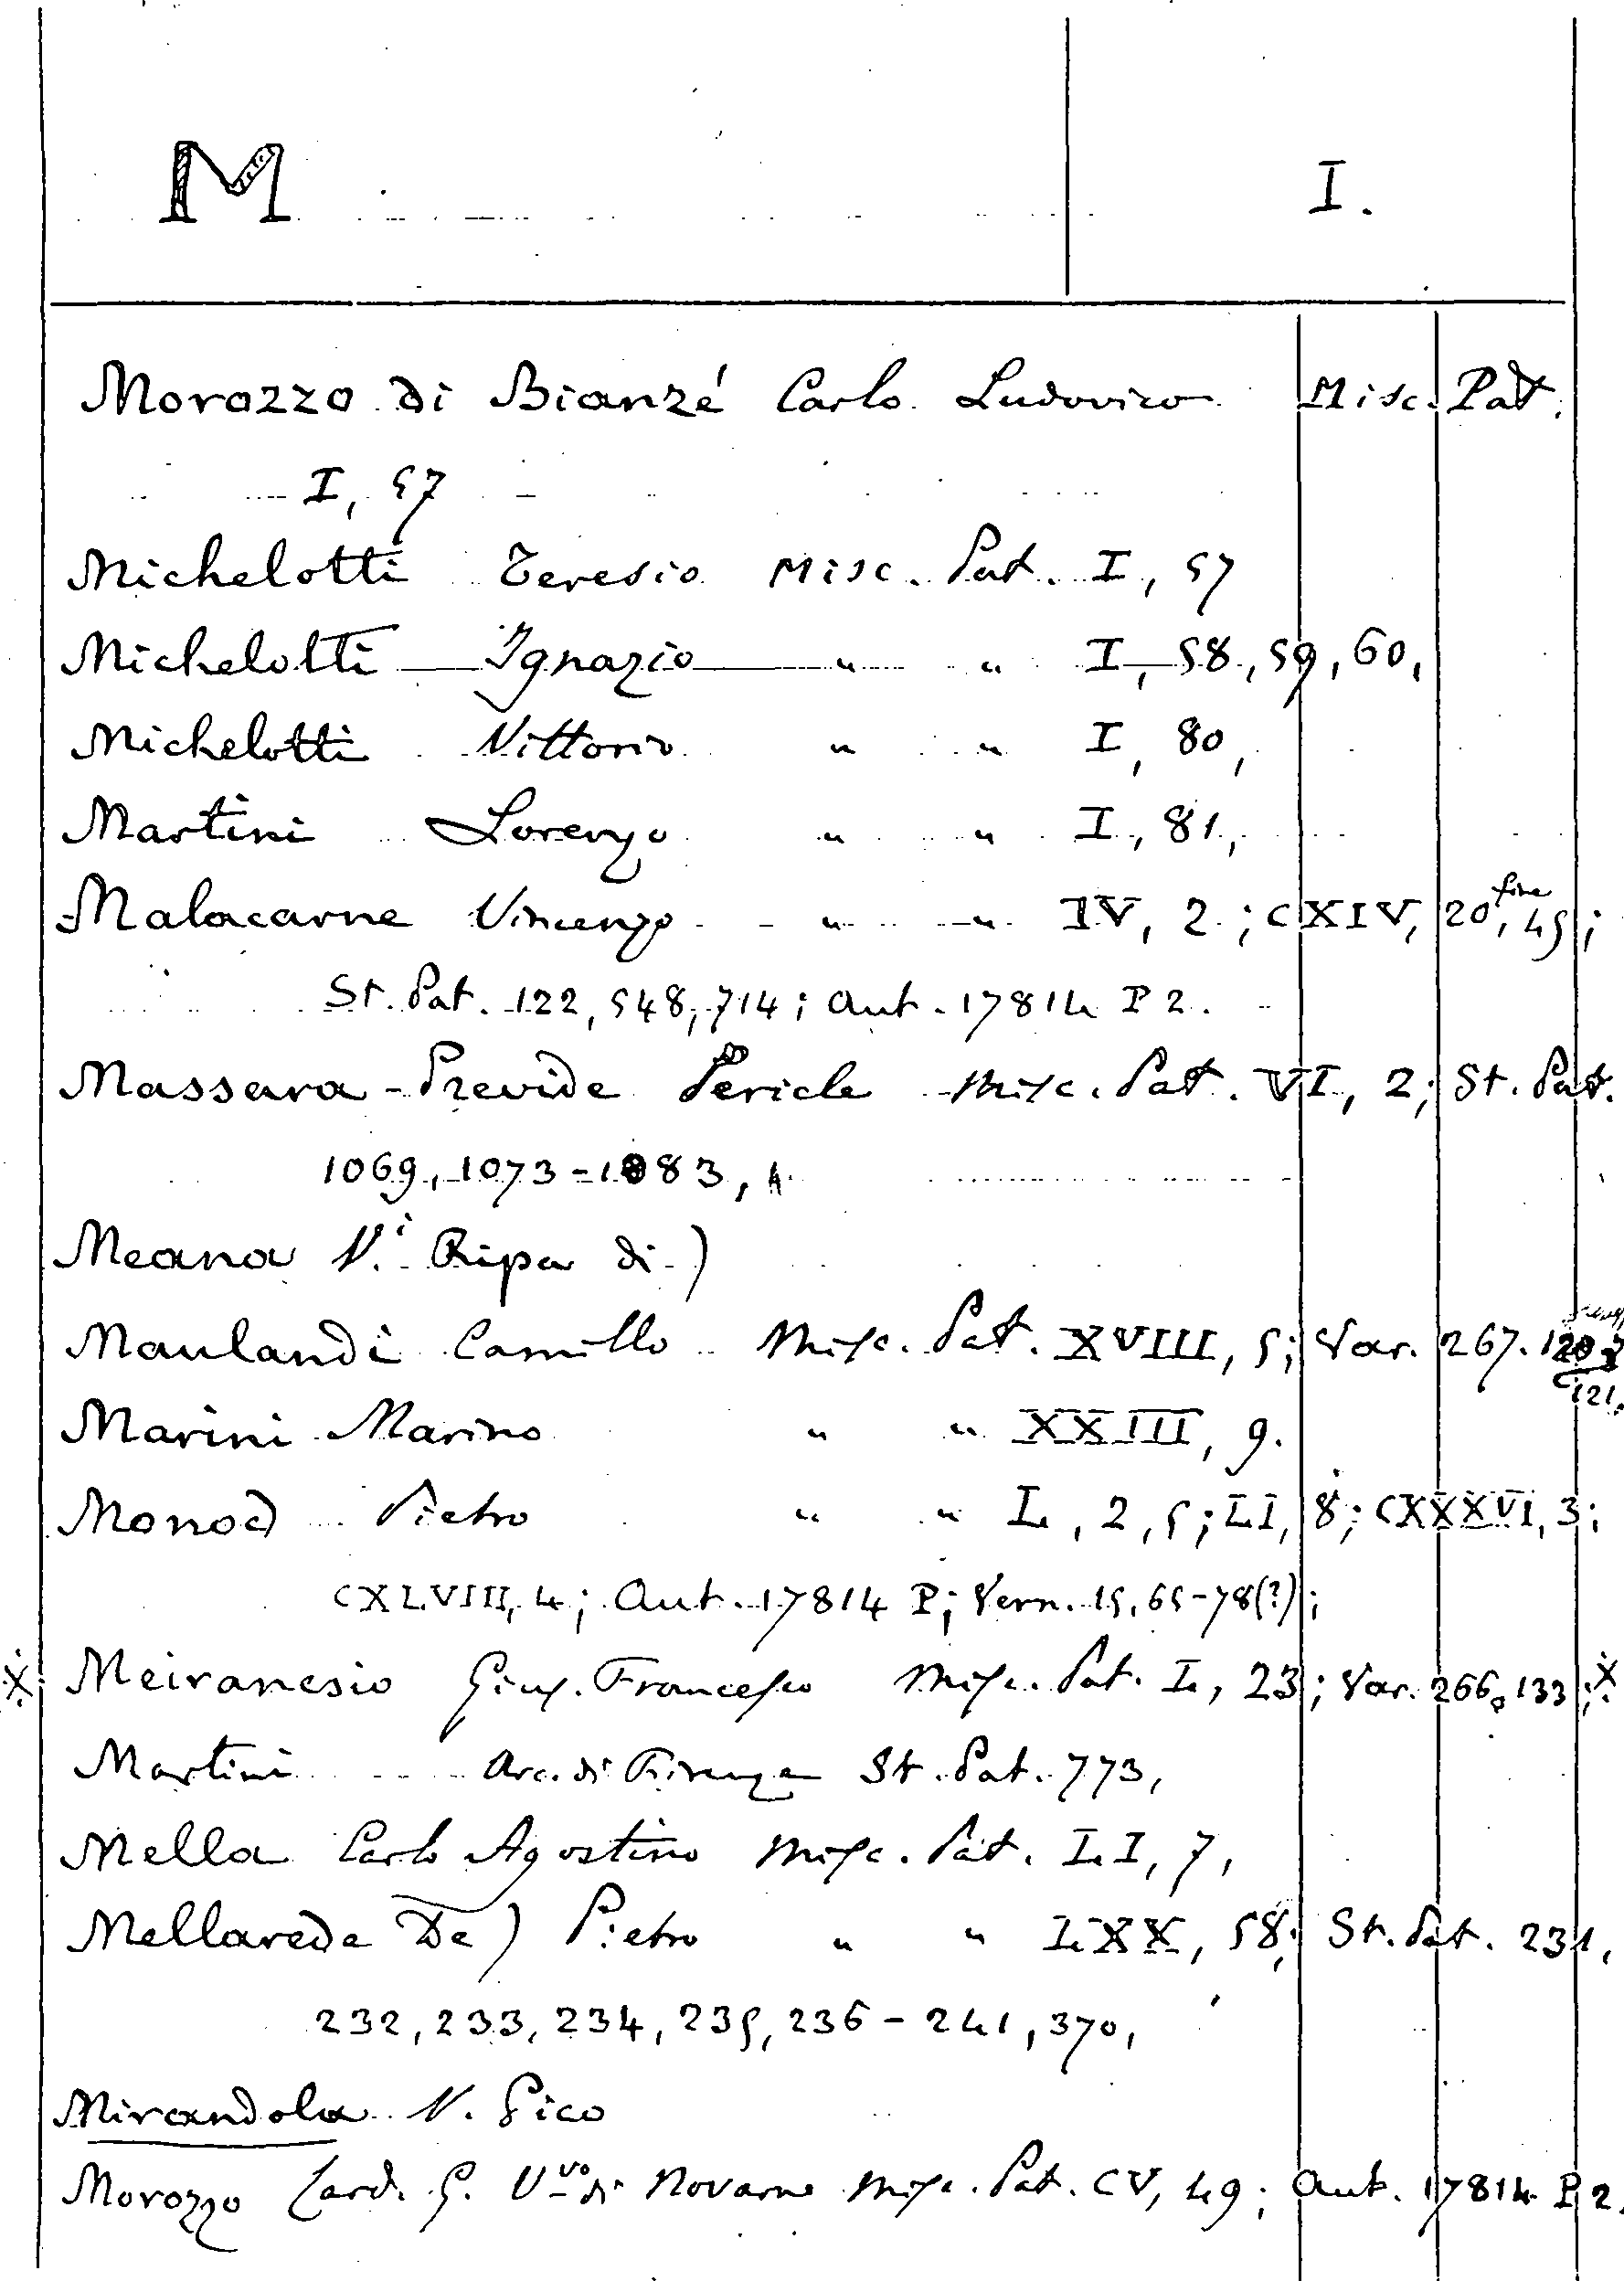 M I.
Morozzo di Bianzé Carlo Ludovico Misc. Pat.
I, 57
Michelotti Teresio Misc. Pat. I, 57
Michelotti Ignazio " " I, 58, 59, 60,
Michelotti Vittorio " " I, 80,
Martini Lorenzo " " I, 81,
Malacarne Vincenzo " " IV, 2; CXIV, 20 fine, 45;
St. Pat. 122, 548, 714; Aut. 17814 P 2.
Massara-Previde Pericle Misc. Pat. VI, 2; St. Pat.
1069, 1073-1083,
Meana V.i Ripa di)
Maulandi Camillo Misc. Pat. XVIII, 5; Var. 267.
121.
Marini Marino " " XXIII, 9.
Monod Pietro " " L, 2, 5; LI, 8; CXXXVI, 3;
CXLVIII, 4; Aut. 17814 P; Vern. 15, 65-78(?);
X Meiranesio Gius. Francesco Misc. Pat. L, 23; Var. 266, 133; X
Martini Arc. di Firenze St. Pat. 773,
Mella Carlo Agostino Misc. Pat. LI, 7,
Mellarede De) Pietro " " LXX, 58; St. Pat. 231,
232, 233, 234, 235, 236-241, 370,
Mirandola V. Pico
Morozzo Card. G. Vvo di Novara Misc. Pat. CV, 49; Aut. 17814 P 2,